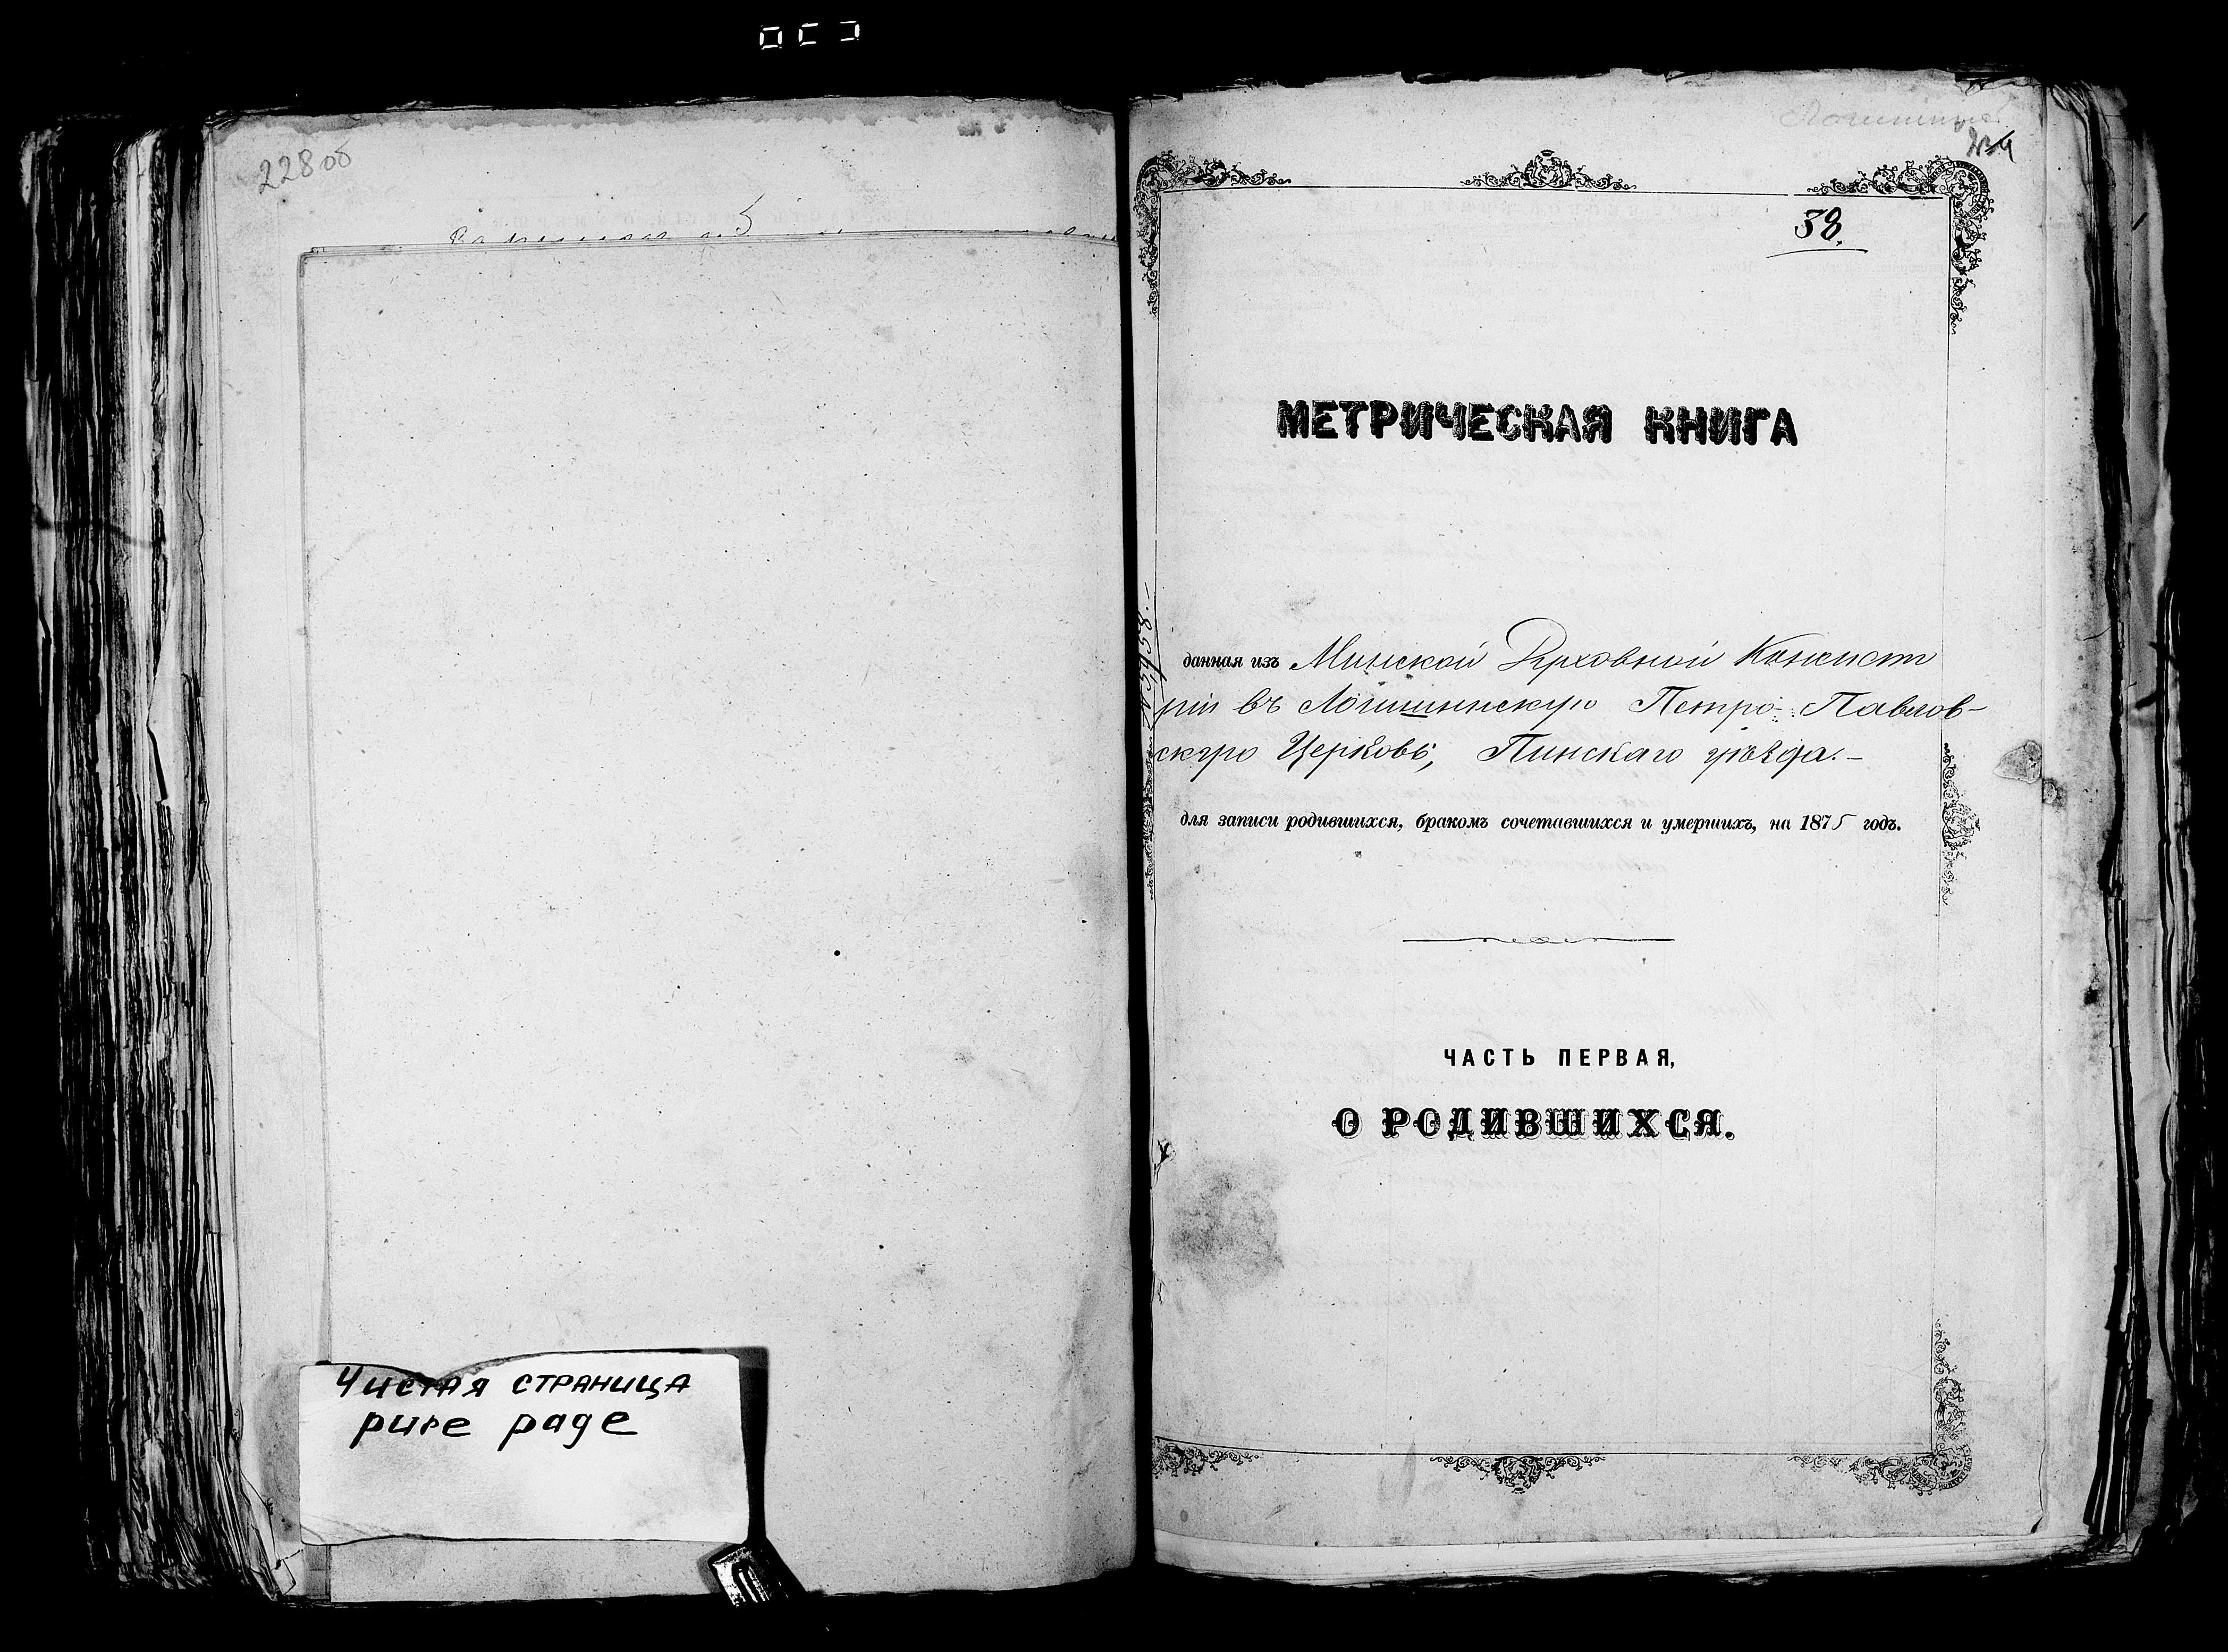 228об
Чистая страница
pure page
38.
МЕТРИЧЕСКАЯ КНИГА
данная изъ Минской Духовной Консисто
ріи въ Логишинскую Петро-Павлов-
скую Церковь, Пинскаго уѣзда.-
для записи родившихся, бракомъ сочетавшихся и умершихъ, на 1875 годъ.
ЧАСТЬ ПЕРВАЯ,
О РОДИВШИХСЯ.